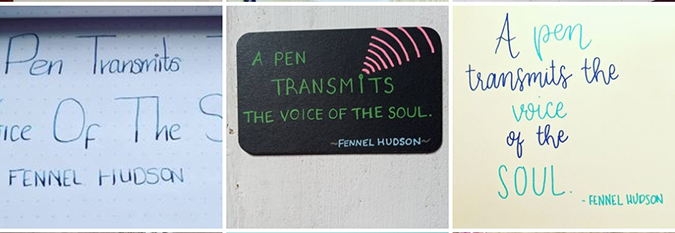 Pen Transmits
ice Of The S
FENNEL HUDSON
A PEN
TRANSMITS
THE VOICE OF THE SOUL.
~FENNEL HUDSON~
A pen
transmits the
voice
of the
SOUL.
- FENNEL HUDSON